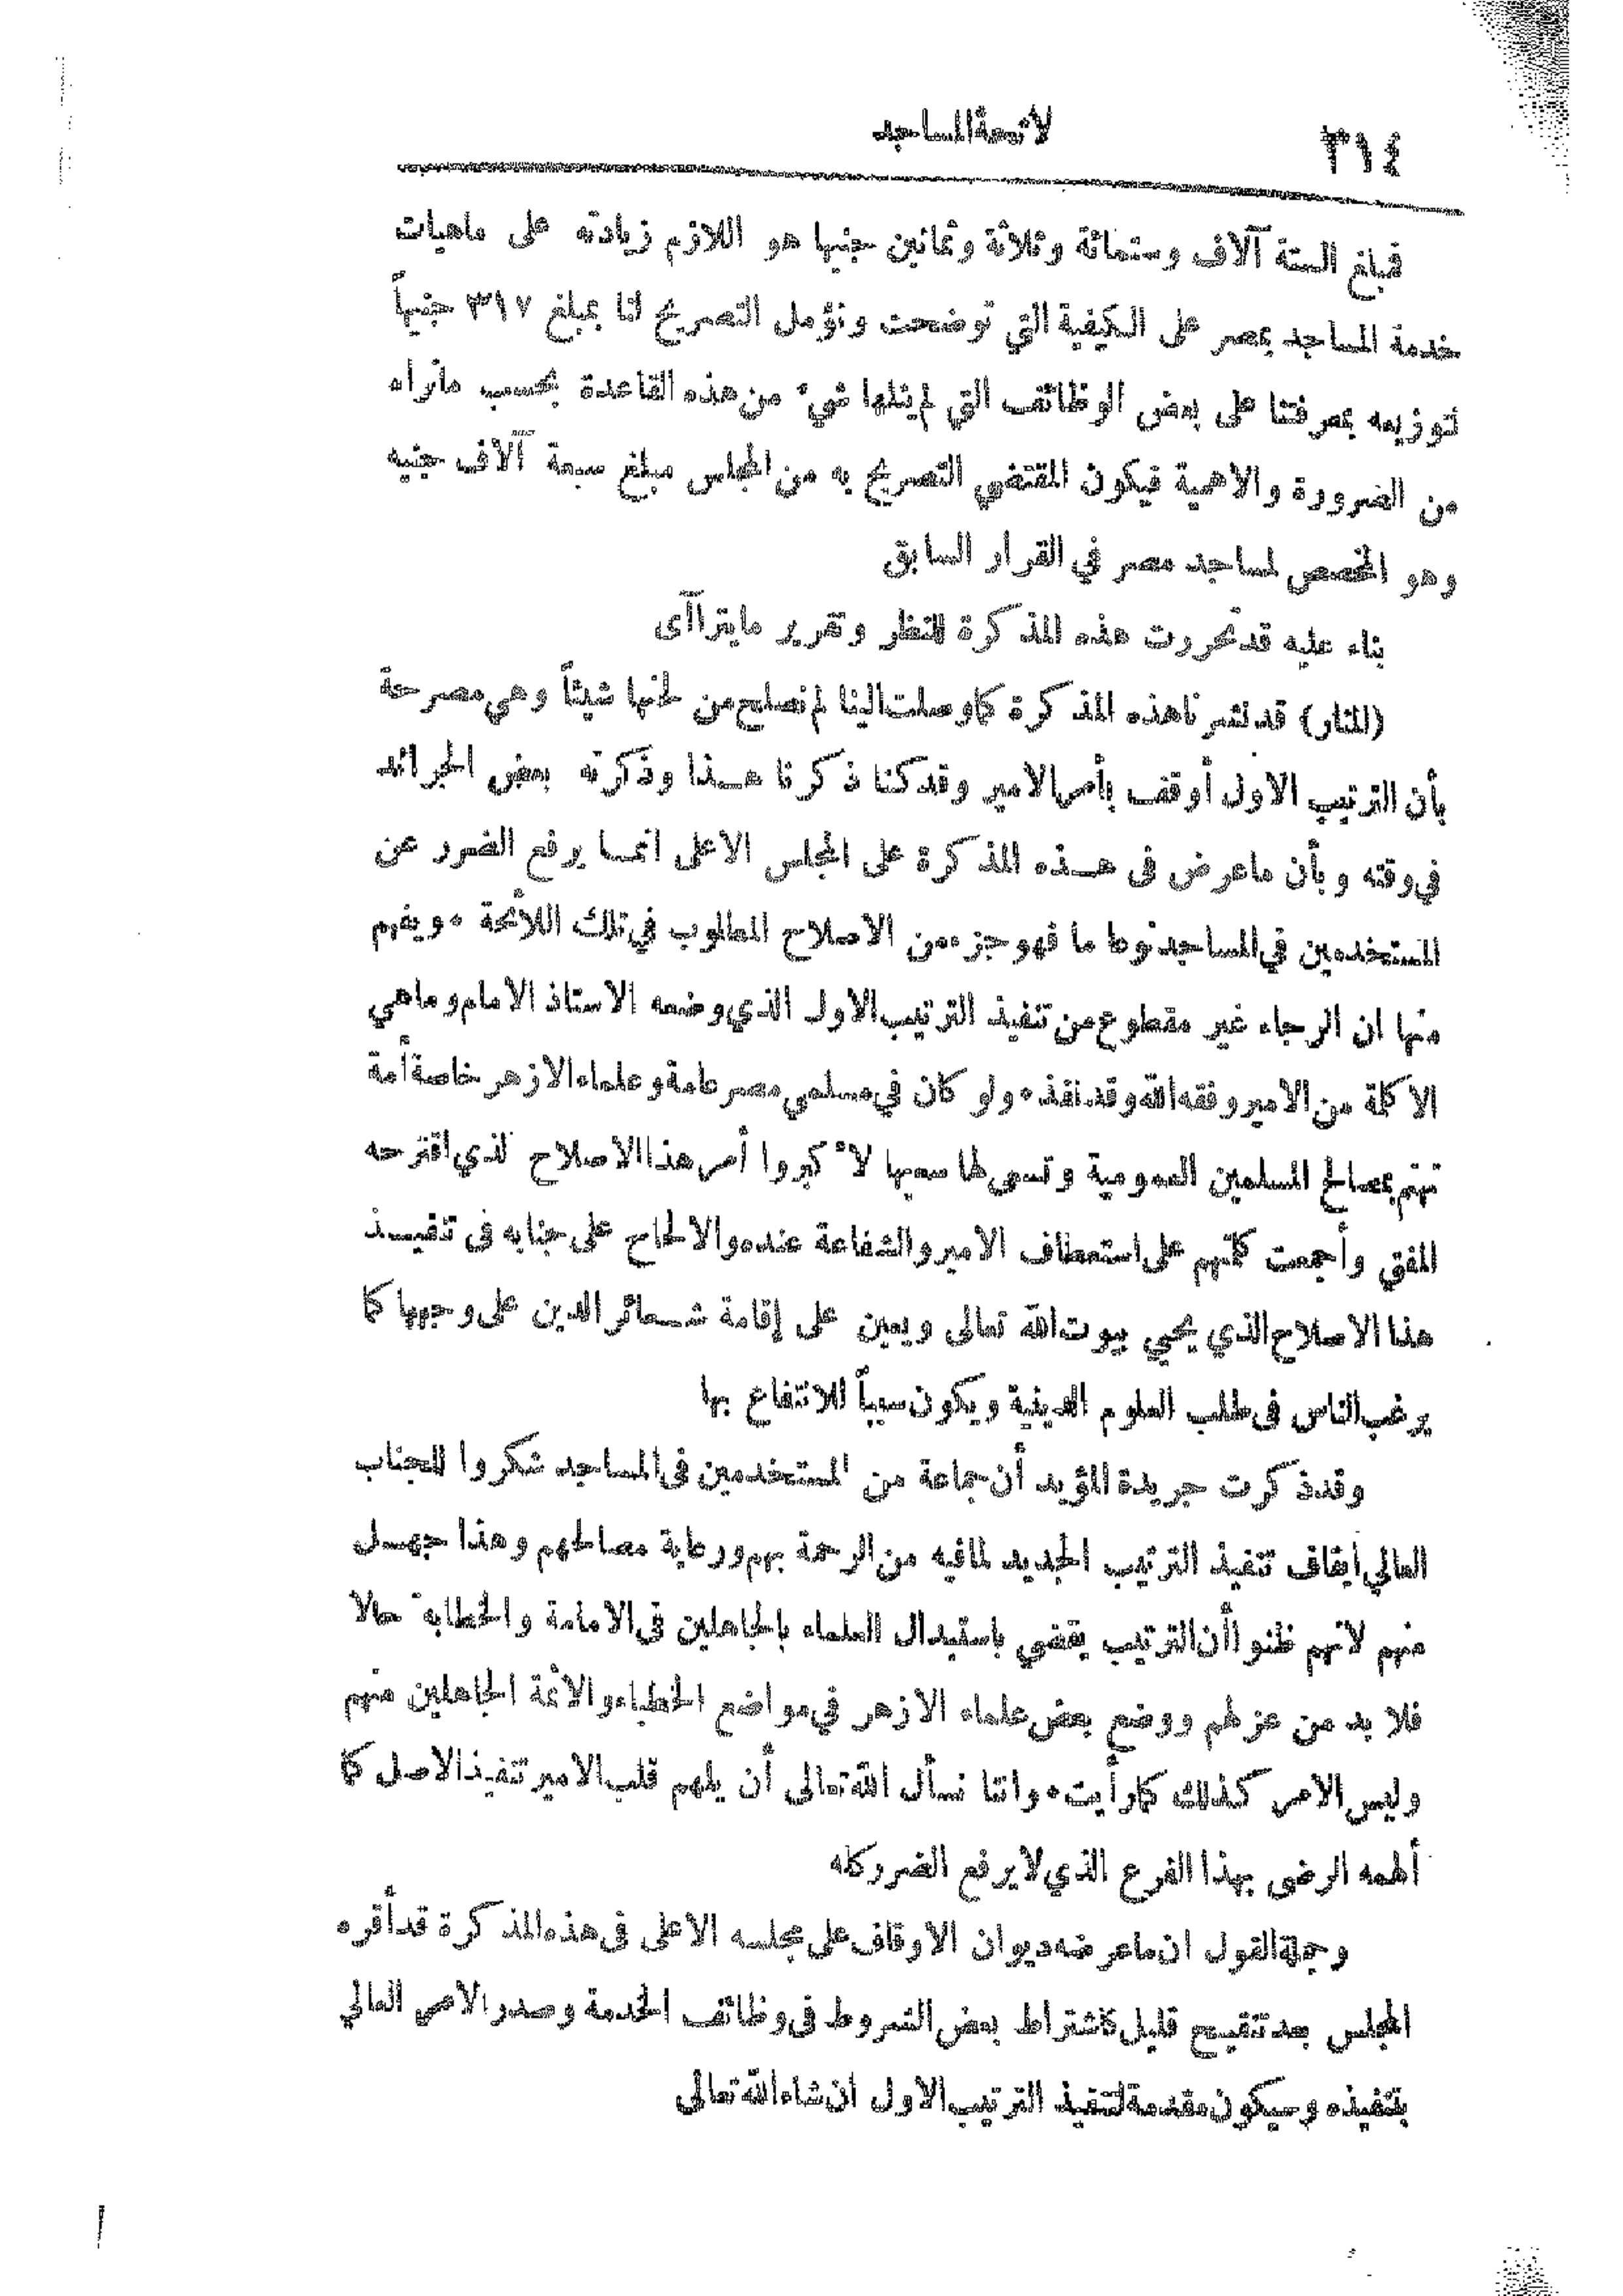 ٣١٤
لائحة المساجد
فبلغ الستة آلاف وستمائة وثلاثة وثمانين جنيها هو اللازم زيادته على ماهيات
خدمة المساجد بمصر على الكيفية التي توضحت ونؤمل التصريح لنا بمبلغ ٣١٧ جنيهاً
توزيعه بمعرفتنا على بعض الوظائف التي لم ينلها شيء من هذه القاعدة بحسب مانراه
من الضرورة والاهمية فيكون المقتضي التصريح به من المجلس مبلغ سبعة آلاف جنيه
وهو المخصص لمساجد مصر في القرار السابق
بناء عليه قد تحررت هذه المذكرة للنظر وتقرير مايترا آى
(المنار) قد نشرنا هذه المذكرة كما وصلت الينا لم نصلح من لحنها شيئاً وهي مصرحة
بأن الترتيب الاول أوقف بأمر الامير وقد كنا ذكرنا هذا وذكرته بعض الجرائد
في وقته وبأن ماعرض في هذه المذكرة على المجلس الاعلى انما يرفع الضرر عن
المستخدمين في المساجد نوعا ما فهو جزء من الاصلاح المطلوب في تلك اللائحة ٠ ويفهم
منها ان الرجاء غير مقطوع من تنفيذ الترتيب الاول الذي وضعه الاستاذ الامام وما هي
الا كلمة من الامير وفقه الله وقد نفذ ٠ ولو كان في مسلمي مصر عامة وعلماء الازهر خاصة أمة
تهتم بمصالح المسلمين العمومية وتسعى لها سعيها لأكبروا أمر هذا الاصلاح الذي اقترحه
المفتي وأجمعت كلمتهم على استعطاف الامير والشفاعة عنده والالحاح على جنابه في تنفيذ
هذا الاصلاح الذي يحيي بيوت الله تعالى ويعين على إقامة شعائر الدين على وجهها كما
يرغب الناس في طلب العلوم الدينية ويكون سبباً للانتفاع بها
وقد ذكرت جريدة المؤيد أن جماعة من المستخدمين في المساجد شكروا للجناب
العالي ايقاف تنفيذ الترتيب الجديد لما فيه من الرحمة بهم ورعاية مصالحهم وهذا جهل
منهم لانهم ظنوا أن الترتيب يقضي باستبدال العلماء بالجاهلين في الامامة والخطابة حالا
فلا بد من عزلهم ووضع بعض علماء الازهر في مواضع الخطباء والائمة الجاهلين منهم
وليس الامر كذلك كما رأيت ٠ واننا نسأل الله تعالى أن يلهم قلب الامير تنفيذ الاصل كما
ألهمه الرضى بهذا الفرع الذي لا يرفع الضرر كله
وجملة القول ان ماعرضه ديوان الاوقاف على مجلسه الاعلى في هذه المذكرة قد أقره
المجلس بعد تنقيح قليل كاشتراط بعض الشروط في وظائف الخدمة وصدر الامر العالي
بتنفيذه وسيكون مقدمة لتنفيذ الترتيب الاول ان شاء الله تعالى